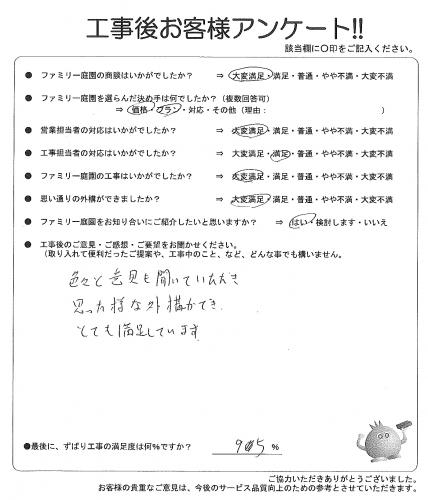 工事後お客様アンケート!!
該当欄に○印をご記入ください。
● ファミリー庭園の商談はいかがでしたか? ⇒ 大変満足・満足・普通・やや不満・大変不満
● ファミリー庭園を選らんだ決め手は何でしたか?(複数回答可)
⇒ 価格・プラン・対応・その他(理由: )
● 営業担当者の対応はいかがでしたか? ⇒ 大変満足・満足・普通・やや不満・大変不満
● 工事担当者の対応はいかがでしたか? ⇒ 大変満足・満足・普通・やや不満・大変不満
● ファミリー庭園の工事はいかがでしたか? ⇒ 大変満足・満足・普通・やや不満・大変不満
● 思い通りの外構ができましたか? ⇒ 大変満足・満足・普通・やや不満・大変不満
● ファミリー庭園をお知り合いにご紹介したいと思いますか? ⇒ はい・検討します・いいえ
● 工事後のご意見・ご感想・ご要望をお聞かせください。
(取り入れて便利だったご提案や、工事中のこと、など、どんな事でも構いません。
色々と意見も聞いていただき
思った様な外構ができ
とても満足しています
●最後に、ずばり工事の満足度は何%ですか? 95 %
ご協力いただきありがとうございました。
お客様の貴重なご意見は、今後のサービス品質向上のための参考とさせていただきます。